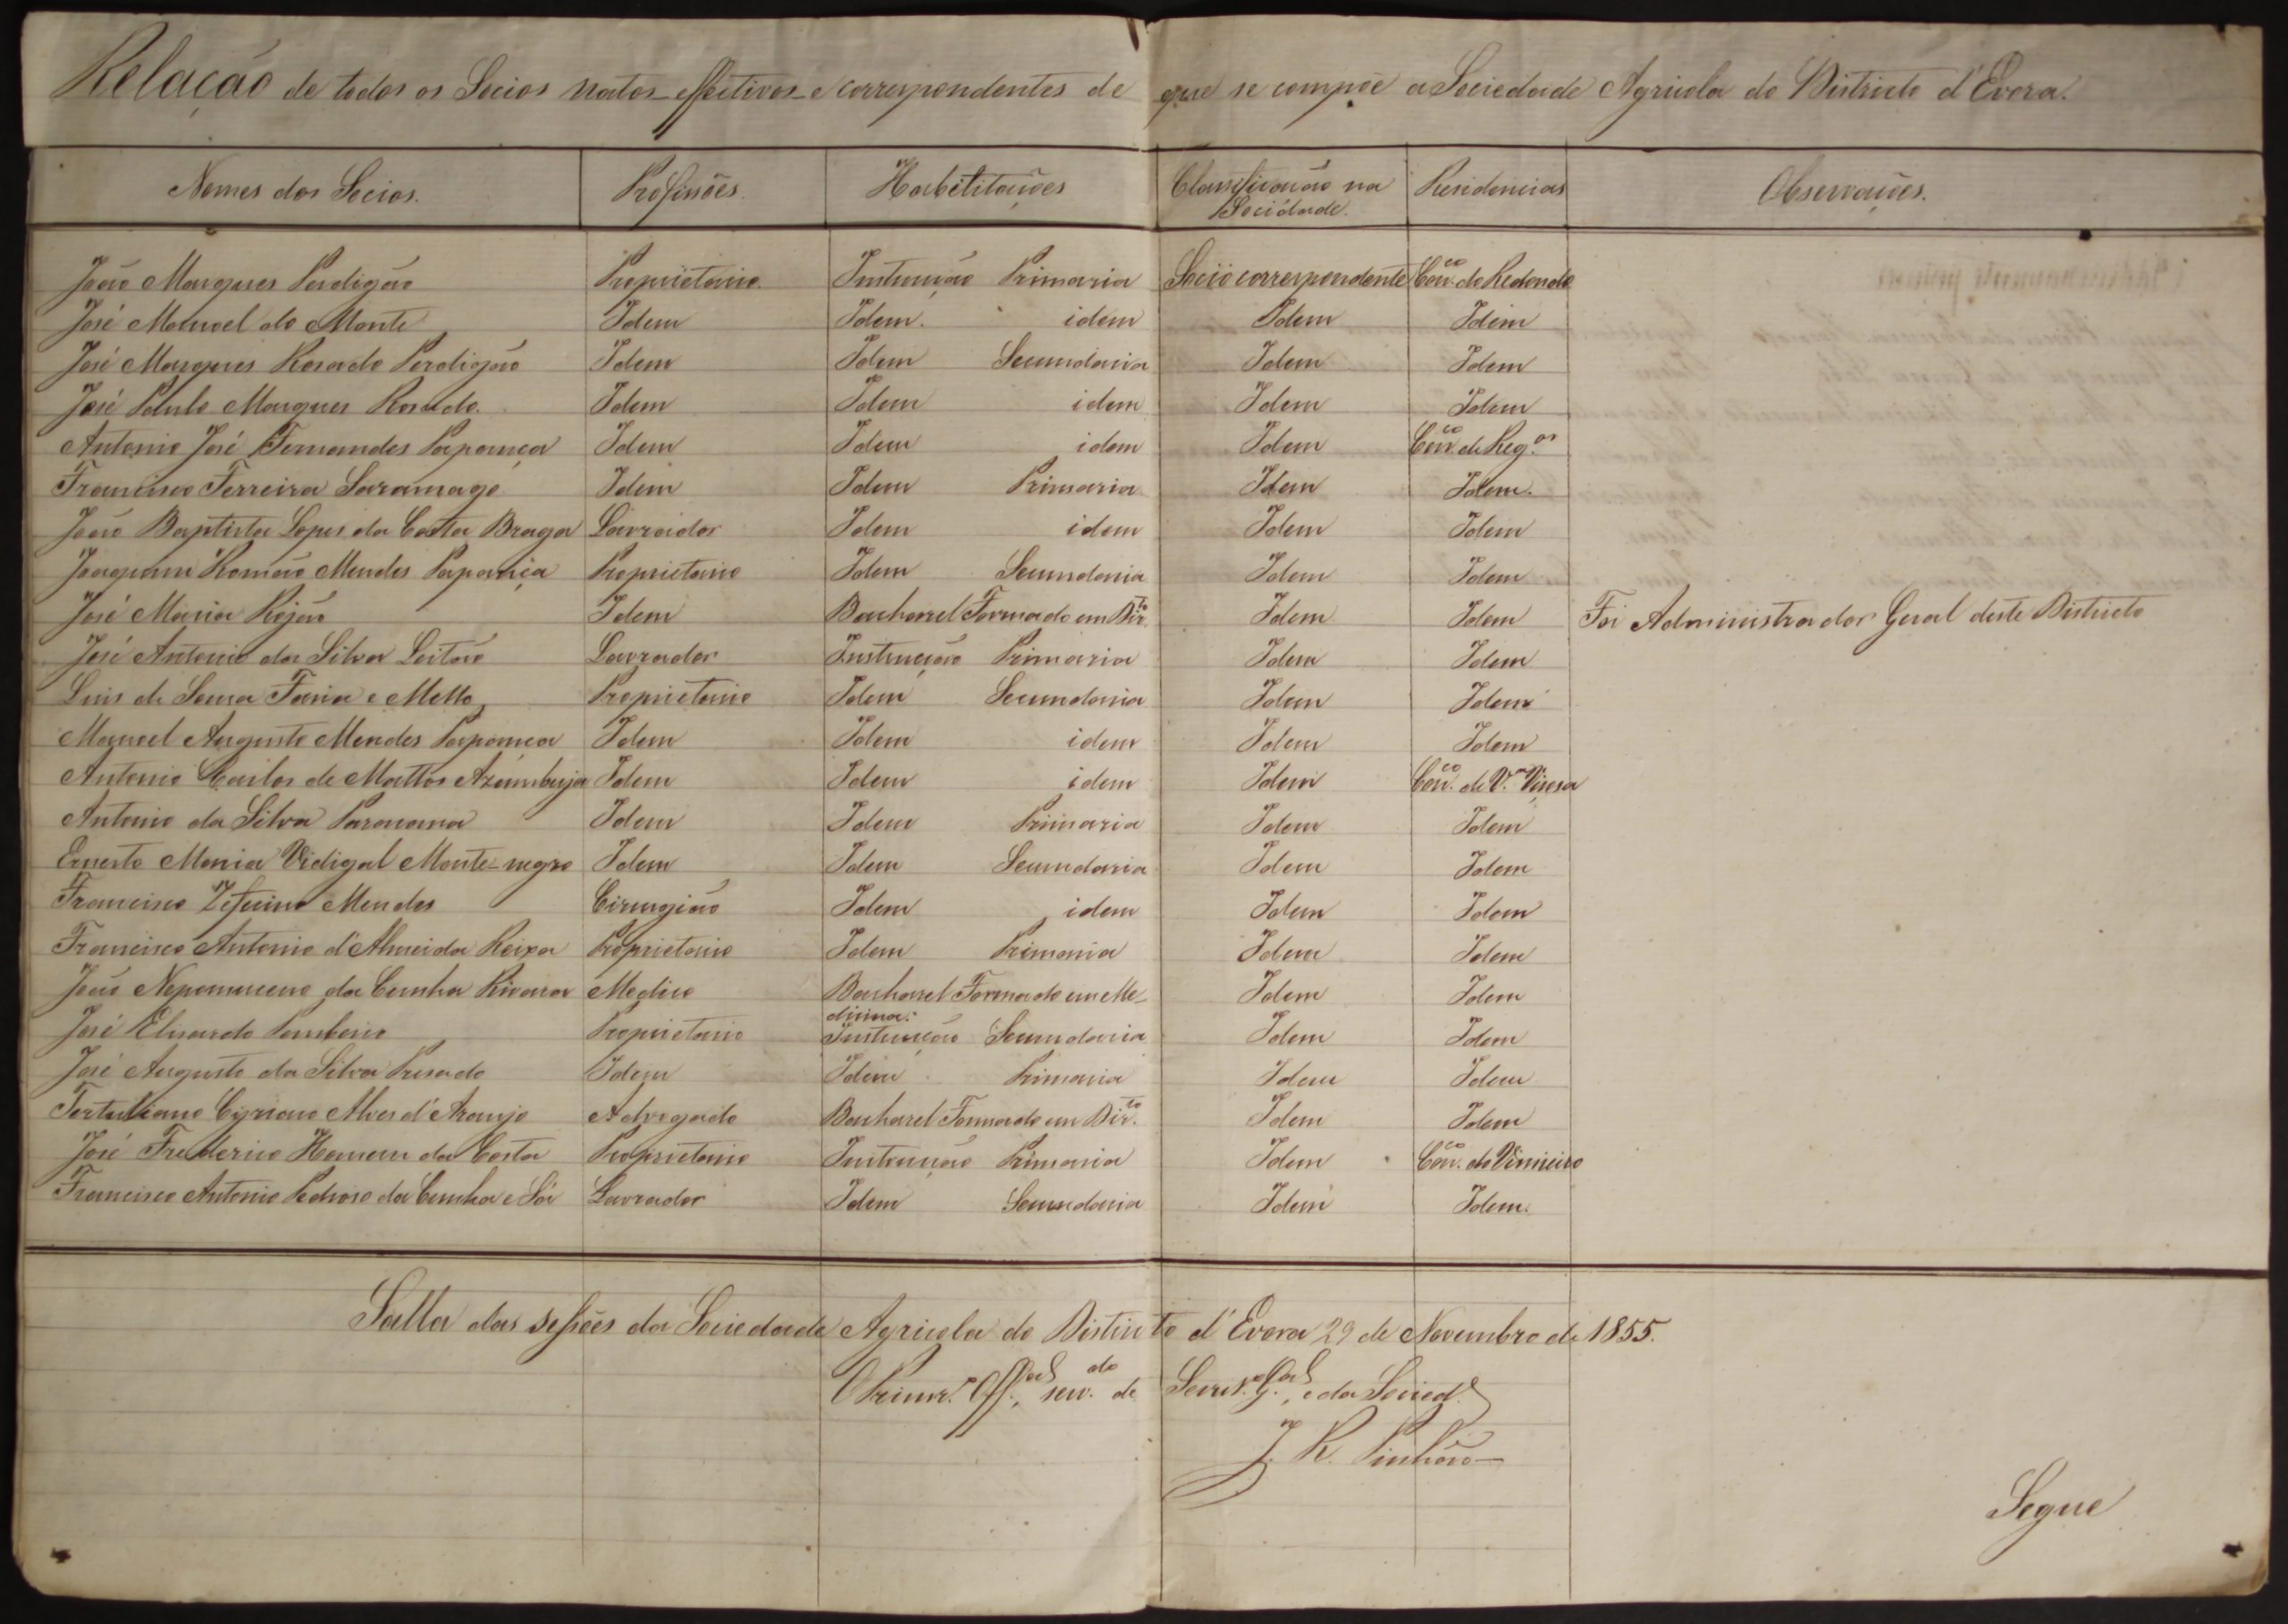 Relação de todos os Socios natos effectivos e correspondentes de que se compõe a Sociedade Agricola do Districto d'Evora.
Nomes dos Socios. Profissões. Habilitações Classificação na Sociedade. Residencias Observações.
João Marques Perdigão Proprietario. Instrucção Primaria Socio correspondente Con.co do Redondo
José Manoel do Monte Idem Idem. idem Idem Idem
José Marques Rosado Perdigão Idem Idem Secundaria Idem Idem
José Paulo Marques Rosado. Idem Idem idem Idem Idem
Antonio José Fernandes Papança Idem Idem idem Idem Con.co de Reg.os
Francisco Ferreira Saramago Idem Idem Primaria Idem Idem.
João Baptista Lopes da Costa Braga Lavrador Idem idem Idem Idem
Joaquim Romão Mendes Papança Proprietario Idem Secundaria Idem Idem
José Maria Rojão Idem Bacharel Formado em Dir.to Idem Idem Foi Administrador Geral deste Districto
José Antonio da Silva Leitão Lavrador Instrucção Primaria Idem Idem
Luis de Sousa Faria e Mello Proprietario Idem Secundaria Idem Idem
Manoel Augusto Mendes Papança Idem Idem idem Idem Idem
Antonio Carlos de Mattos Azambuja Idem Idem idem Idem Con.co de V.a Viçosa
Antonio da Silva Paranana Idem Idem Primaria Idem Idem
Ernesto Maria Vidigal Monte-negro Idem Idem Secundaria Idem Idem
Francisco Zeferino Mendes Cirurgião Idem idem Idem Idem
Francisco Antonio d'Almeida Reixa Proprietario Idem Primaria Idem Idem
João Nepomuceno da Cunha Rivara Medico Bacharel Formado em Me-
dicina. Idem Idem
José Eduardo Pamberio Proprietario Instrucção Secundaria Idem Idem
José Augusto da Silva Presado Idem Idem Primaria Idem Idem
Tertuliano Cypriano Alves d'Araujo Advogado Bacharel Formado em Dir.to Idem Idem
José Frederico Homem da Costa Proprietario Instrucção Primaria Idem Con.co do Vimieiro
Francisco Antonio Pedroso da Cunha e Sá Lavrador Idem Secundaria Idem Idem.
Salla das sessões da Sociedade Agricola do Districto d'Evora 29 de Novembro de 1855.
O Primr.o Off.al, serv.do de Secret.o G.al, e da Socied.e
J. R. Pinhão
Segue